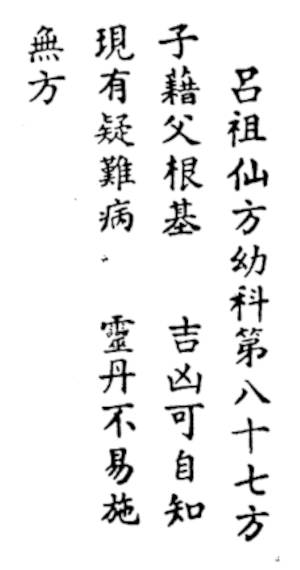 呂祖仙方幼科第八十七方
子藉父根基　吉凶可自知
現有疑難病　靈丹不易施
無方